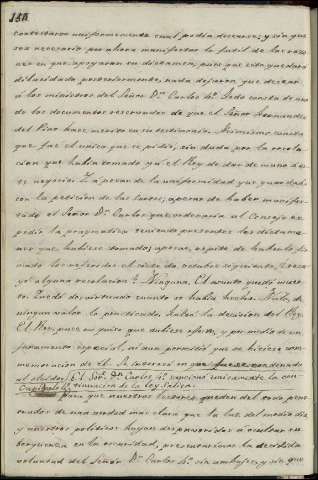 150
contestaron uniformemente cual podia desearse; y sin que
sea necesario por ahora manifestar la futil de las razo
nes en que apoyaron su dictamen, pues que esta quedara
dilucidada posteriormente, nada dejaron que desear
á los ministros del Señor Dn. Carlos 4º. Todo consta de uno
de los documentos reservados de que el Señor Hernandez
del Pino hace merito en su testimonio. Asimismo consta
que fue el unico que se pidio, sin duda por la revela
cion que habia tomado ya el Rey de dar de mano á es
te negocio. Y á pesar de la uniformidad que guardaba
con la peticion de las Cortes; apesar de haber manifes
tado el Señor Dn. Carlos que ordenaria al Consejo ex
pedir la pragmatica teniendo presentes los dictame
nes que hubiese tomado; apesar, repito, de haberlo fir
mado los referidos el siete de octubre siguiente, ¿reca
yó alguna resolucion? Ninguna. El asunto quedó muer
to. Quedó desvirtuado cuanto se habia hecho. Nulo, de
ningun valor lo practicado, faltó la decision del Rey.
El Rey, pues no quiso que tubiese efecto, y por medio de un
juramento especial, ni aun permitió que se hiciese con
memoracion de él. Se interesó en que fuese condenado
al olvido. El Señor Dn. Carlos 4º sancionó unicamente la con
tinuacion de la ley Salica.
Capitulo
Para que nuestros lectores queden del todo pene
trados de una verdad mas clara que la luz del medio dia
y nuestros politicos hayan de pavoridos á ocultar su
berguenza en la oscuridad, presentaremos la decidida
voluntad del Señor Dn. Carlos 4º sin ambajes, y sin que